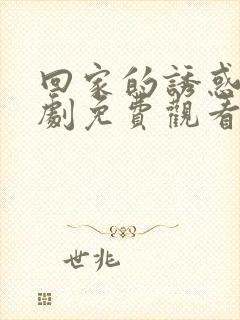 回家的誘惑
劇免費觀看
世兆